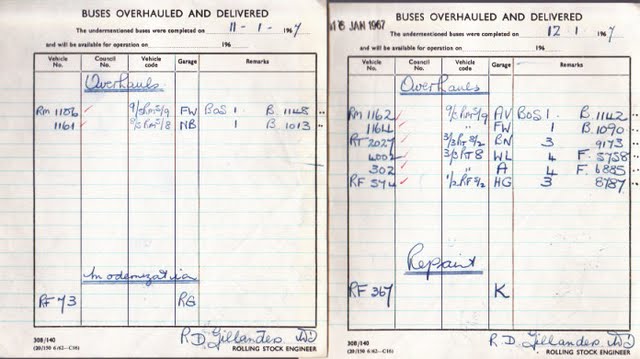 BUSES OVERHAULED AND DELIVERED
The undermentioned buses were completed on 11-1-1967
and will be available for operation on 196
Vehicle No. Council No. Vehicle code Garage Remarks
Overhauls
RM 1156 ✓ FW BOS 1 B. 1148
1161 ✓ NB 1 B. 1013
Modernization
RF 73 RG
R.D. Gillandes
308/140
(20/150 6/62—C16) ROLLING STOCK ENGINEER
16 JAN 1967
BUSES OVERHAULED AND DELIVERED
The undermentioned buses were completed on 12 1 1967
and will be available for operation on 196
Vehicle No. Council No. Vehicle code Garage Remarks
Overhauls
RM 1162 ✓ AV BOS 1 B. 1142
1164 ✓ " FW 1 B. 1090
RT 2027 ✓ BN 3 9173
4002 ✓ 3/3 RT 8 WL 4 F. 5758
302 ✓ " A 4 F. 6885
RF 574 ✓ HG 3 8787
Repaint
RF 367 K
R.D. Gillandes
308/140
(20/150 6/62—C16) ROLLING STOCK ENGINEER